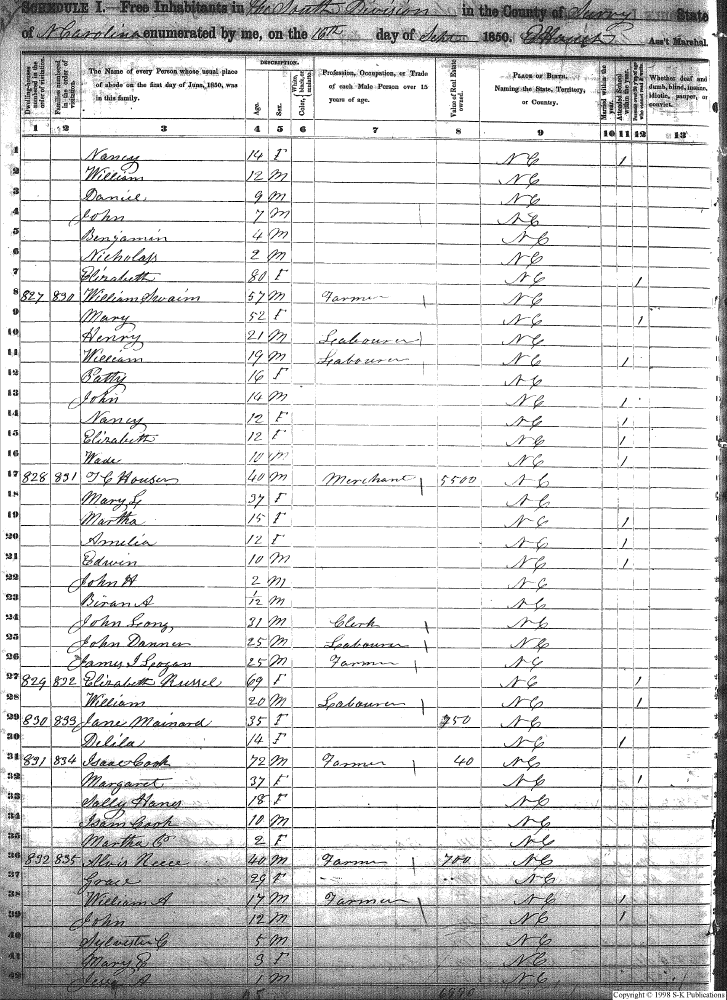 SCHEDULE I.—Free Inhabitants in the South Division in the County of Surry State
of N Carolina enumerated by me, on the 16th day of Sept 1850. Ass't Marshal.
Dwelling-houses numbered in the order of visitation.
Families numbered in the order of visitation.
The Name of every Person whose usual place of abode on the first day of June, 1850, was in this family.
DESCRIPTION.
Age.
Sex.
Color, White, black, or mulatto.
Profession, Occupation, or Trade of each Male Person over 15 years of age.
Value of Real Estate owned.
PLACE OF BIRTH. Naming the State, Territory, or Country.
Married within the year.
Attended School within the year.
Whether deaf and dumb, blind, insane, idiotic, pauper, or convict.
1 2 3 4 5 6 7 8 9 10 11 12 13
1 Nancy 14 F NC /
2 William 12 M NC
3 Daniel 9 M NC
4 John 7 M NC
5 Benjamin 4 M NC
6 Nicholas 2 M NC
7 Elizabeth 80 F NC /
8 827 830 William Swaim 57 M Farmer NC
9 Mary 52 F NC /
10 Henry 21 M Labourer NC
11 William 19 M Labourer NC /
12 Patty 16 F NC
13 John 14 M NC /
14 Nancy 12 F NC /
15 Elizabeth 12 F NC /
16 Wade 10 M NC /
17 828 831 T C Houser 40 M Merchant 5500 NC
18 Mary L 37 F NC
19 Martha 15 F NC /
20 Amelia 12 F NC /
21 Edwin 10 M NC /
22 John H 2 M NC
23 A 1/12 M NC
24 John Long 31 M Clerk NC
25 John Danner 25 M Labourer NC
26 James J Logan 25 M Farmer NC
27 829 832 Elizabeth Russel 69 F NC /
28 William 20 M Labourer NC /
29 830 833 Jane Mainard 35 F 250 NC
30 Delila 14 F NC /
31 831 834 Isaac Cook 72 M Farmer 40 NC
32 Margaret 37 F NC /
33 Sally Hanes 18 F NC
34 Isam Cook 10 M NC
35 Martha C 2 F NC
36 832 835 Alvis Reece 40 M Farmer 700 NC
37 Grace 29 F NC
38 William A 17 M Farmer NC /
39 John 12 M NC /
40 Sylvester C 5 M NC
41 Mary E 3 F NC
42 A 1 M NC
Copyright © 1998 S-K Publications